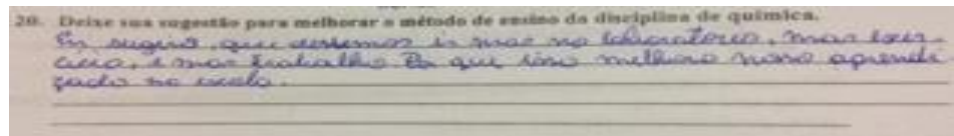 20. Deixe sua sugestão para melhorar o método de ensino da disciplina de química.
Eu sugiro que devemos ir mas no laboratorio, mas exer-
cicio, e mas trabalho que isso melhora nosso aprendi
zado na escola.